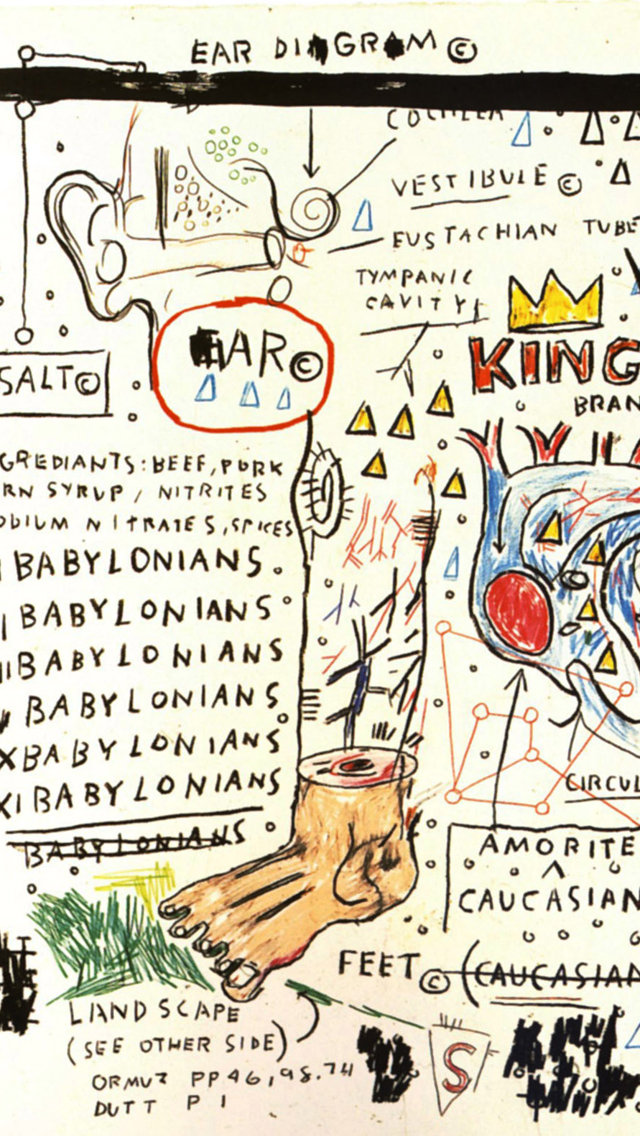 EAR DIAGRAM ©
COCHLEA
VESTIBULE ©
EUSTACHIAN TUBE
TYMPANIC
CAVITY
EAR ©
SALT ©
KING
BRAN
GREDIANTS: BEEF, PORK
RN SYRUP / NITRITES
ODIUM NITRATES, SPICES
BABYLONIANS.
| BABYLONIANS
II BABYLONIANS
BABYLONIANS
X BABYLONIANS
XI BABYLONIANS
BABYLONIANS
CIRCUL
AMORITE
^
CAUCASIAN
FEET © (CAUCASIAN
LANDSCAPE
(SEE OTHER SIDE)
ORMUZ PP 46, 98. 74
DUTT P 1
S